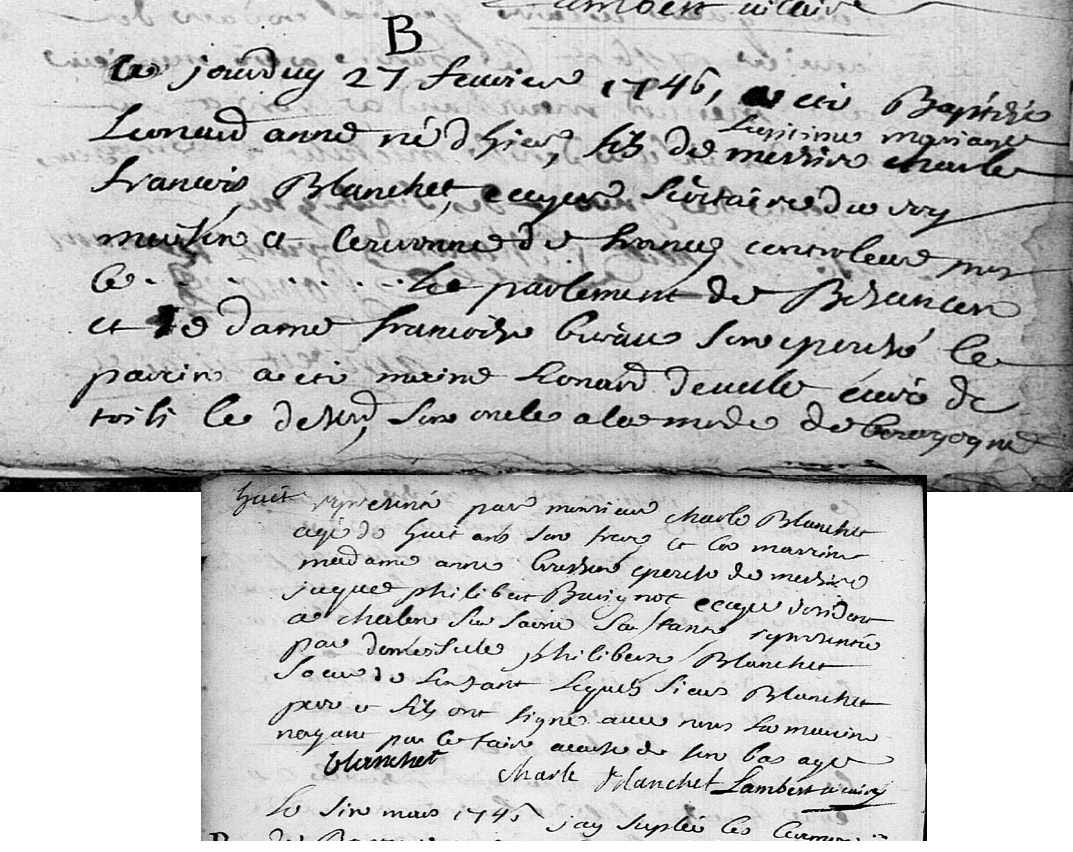 Lambert vicaire
B
ce jourduy 27 fevrier 1746, a eté Baptisé
Leonard anne né d'hier, fils de messire charle
legitime mariage
francois Blanchet, ecuyer secretaire du roy
maison et couronne de france controleur pres
le . . . . . . le parlement de Besancon
et de dame francoise son epouse le
parrin a eté Leonard curé de
le son oncle a la mode de bourgogne
huit representé par monsieur charle Blanchet
agé de huit ans son frere et la marrine
madame anne epouse de messire
jaques philibert Buvignot ecuyer
a chalon sur saone sa tante representée
par demoiselle philiberte Blanchet
soeur de l'enfant lequels sieur Blanchet
pere et fils ont signé avec nous la marine
nayant pas le faire a cause de son bas age
blanchet
charle blanchet Lambert vicaire
Le six mars 1746 jay suplée les
de